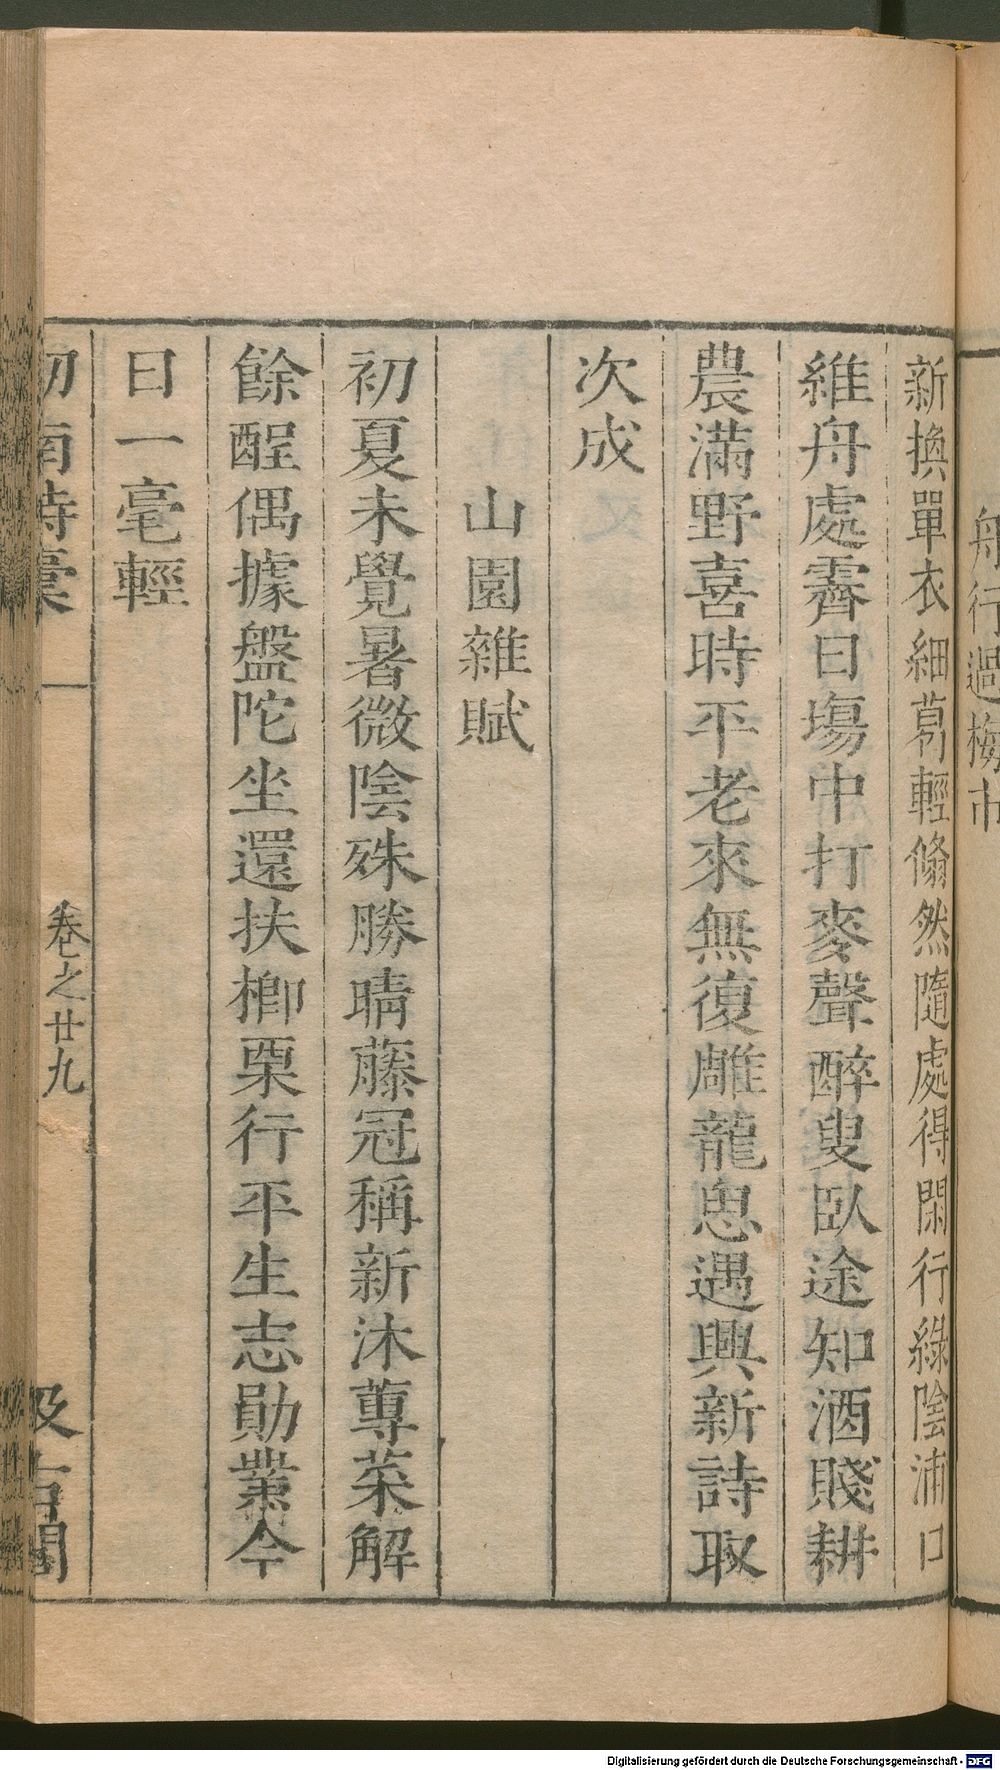 舟行過梅市
新換單衣細葛輕翛然隨處得閑行綠陰浦口
維舟處霽日場中打麥聲醉叟臥途知酒賤耕
農滿野喜時平老來無復雕龍思遇興新詩取
次成
山園雜賦
初夏未覺暑微陰殊勝晴藤冠稱新沐蓴菜解
餘酲偶據盤陀坐還扶楖栗行平生志勛業今
日一毫輕
劍南詩稾
卷之廿九
汲古閣
Digitalisierung gefördert durch die Deutsche Forschungsgemeinschaft - DFG